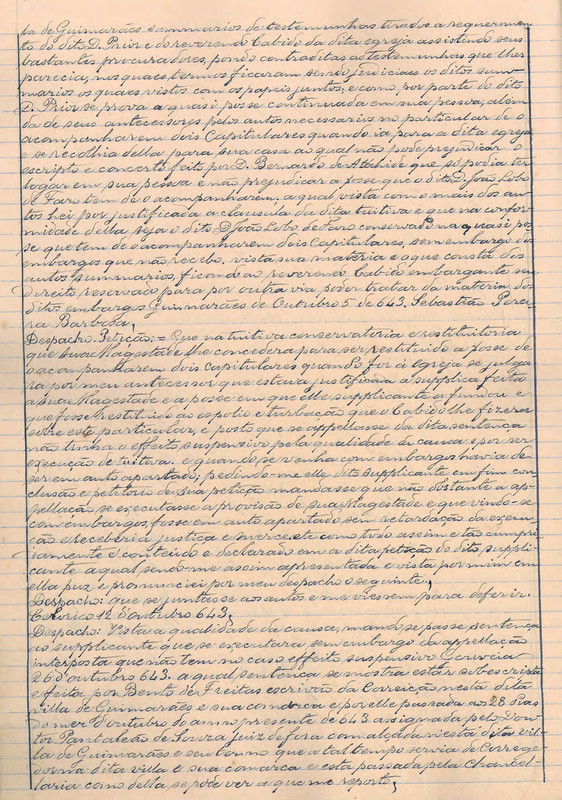 la de Guimarães summarios de testemunhas tirados a requerimen-
to do dito D. Prior e do reverendo Cabido da dita egreja assistindo seus
bastantes procuradores, pondo contraditas ás testemunhas que lhes
parecia; nos quaes termos ficaram sendo judiciaes os ditos sum-
marios os quaes vistos com os papeis juntos; e como por parte do dito
D. Prior se prova a quasi posse continuada em sua pessoa, além
da de seus antecessores pelos autos necessarios no particular de o
acompanharem dois Capitulares quando ia para a dita egreja
e se recolhia della para sua casa ao qual não pode prejudicar o
escripto e concerto feito por D. Bernardo de Athaide que só podia ter
logar em sua pessoa e não prejudicar a posse que o dito D. João Lobo
de Faro tem de o acompanharem, a qual vista com o mais dos au-
tos hei por justificada a clausula da dita tuitiva e que na confor-
midade della seja o dito D. João Lobo de Faro conservado na quasi pos-
se que tem de o acompanharem dois Capitulares, sem embargo dos
embargos que não recebo, vista sua materia e o que consta dos
autos summarios, ficando ao reverendo Cabido embargante seu
direito reservado para por outra via poder tratar da materia dos
ditos embargos Guimarães de Outubro 5 de 643. Sebastião Perei-
ra Barbosa,
Despacho. Petição = Que na tuitiva conservatoria e restitutoria
que Sua Magestade lhe concedera para ser restituido á posse de
o acompanharem dois capitulares quando for á Egreja se julga-
ra por meu antecessor que estava justificada a supplica feita
a Sua Magestade e a posse em que elle supplicante se fundou e
que fosse restituido ao espolio e turbação que o Cabido lhe fizera
sobre este particular, e posto que se appellasse da dita sentença
não tinha o effeito suspensivo pela qualidade da causa e por ser
execução de tuitiva. e quando se venha com embargos havia de
ser em auto apartado, pedindo-me elle dito supplicante em fim con-
clusão e petitorio de sua petição mandasse que não obstante a ap-
pellação se executasse a provisão de sua Magestade e que vindo-se
com embargos, fosse em auto apartado sem retardação da execu-
ção e receberia justiça e merce, etc como tudo assim e tão cumpri-
damente é conteúdo e declarado em a dita petição do dito suppli-
cante a qual sendo-me assim apresentada e vista por mim em
ella puz e pronunciei por meu despacho o seguinte,
Despacho: que se juntasse aos autos e me viessem para deferir.
Celorico 12 d'outubro 643.
Despacho: Vista a qualidade da causa, mando se passe sentença
ao supplicante que se executara, sem embargo da appellação
interposta que não tem no caso effeito suspensivo
26 d'outubro 643. a qual sentença se mostra estar sobescripta
e feita por Bento de Freitas escrivão da Correição nesta dita
villa de Guimarães e sua comarca e por elle passada aos 28 dias
do mez d'outubro do anno presente de 643 assignada pelo Dou-
tor Pantaleão de Souza juiz de fora com alçada nesta dita vil-
la de Guimarães e seu termo que a tal tempo servia de Correge-
dor na dita villa e sua comarca e está passada pela Chancel-
laria como della se pode ver a que me reporto,